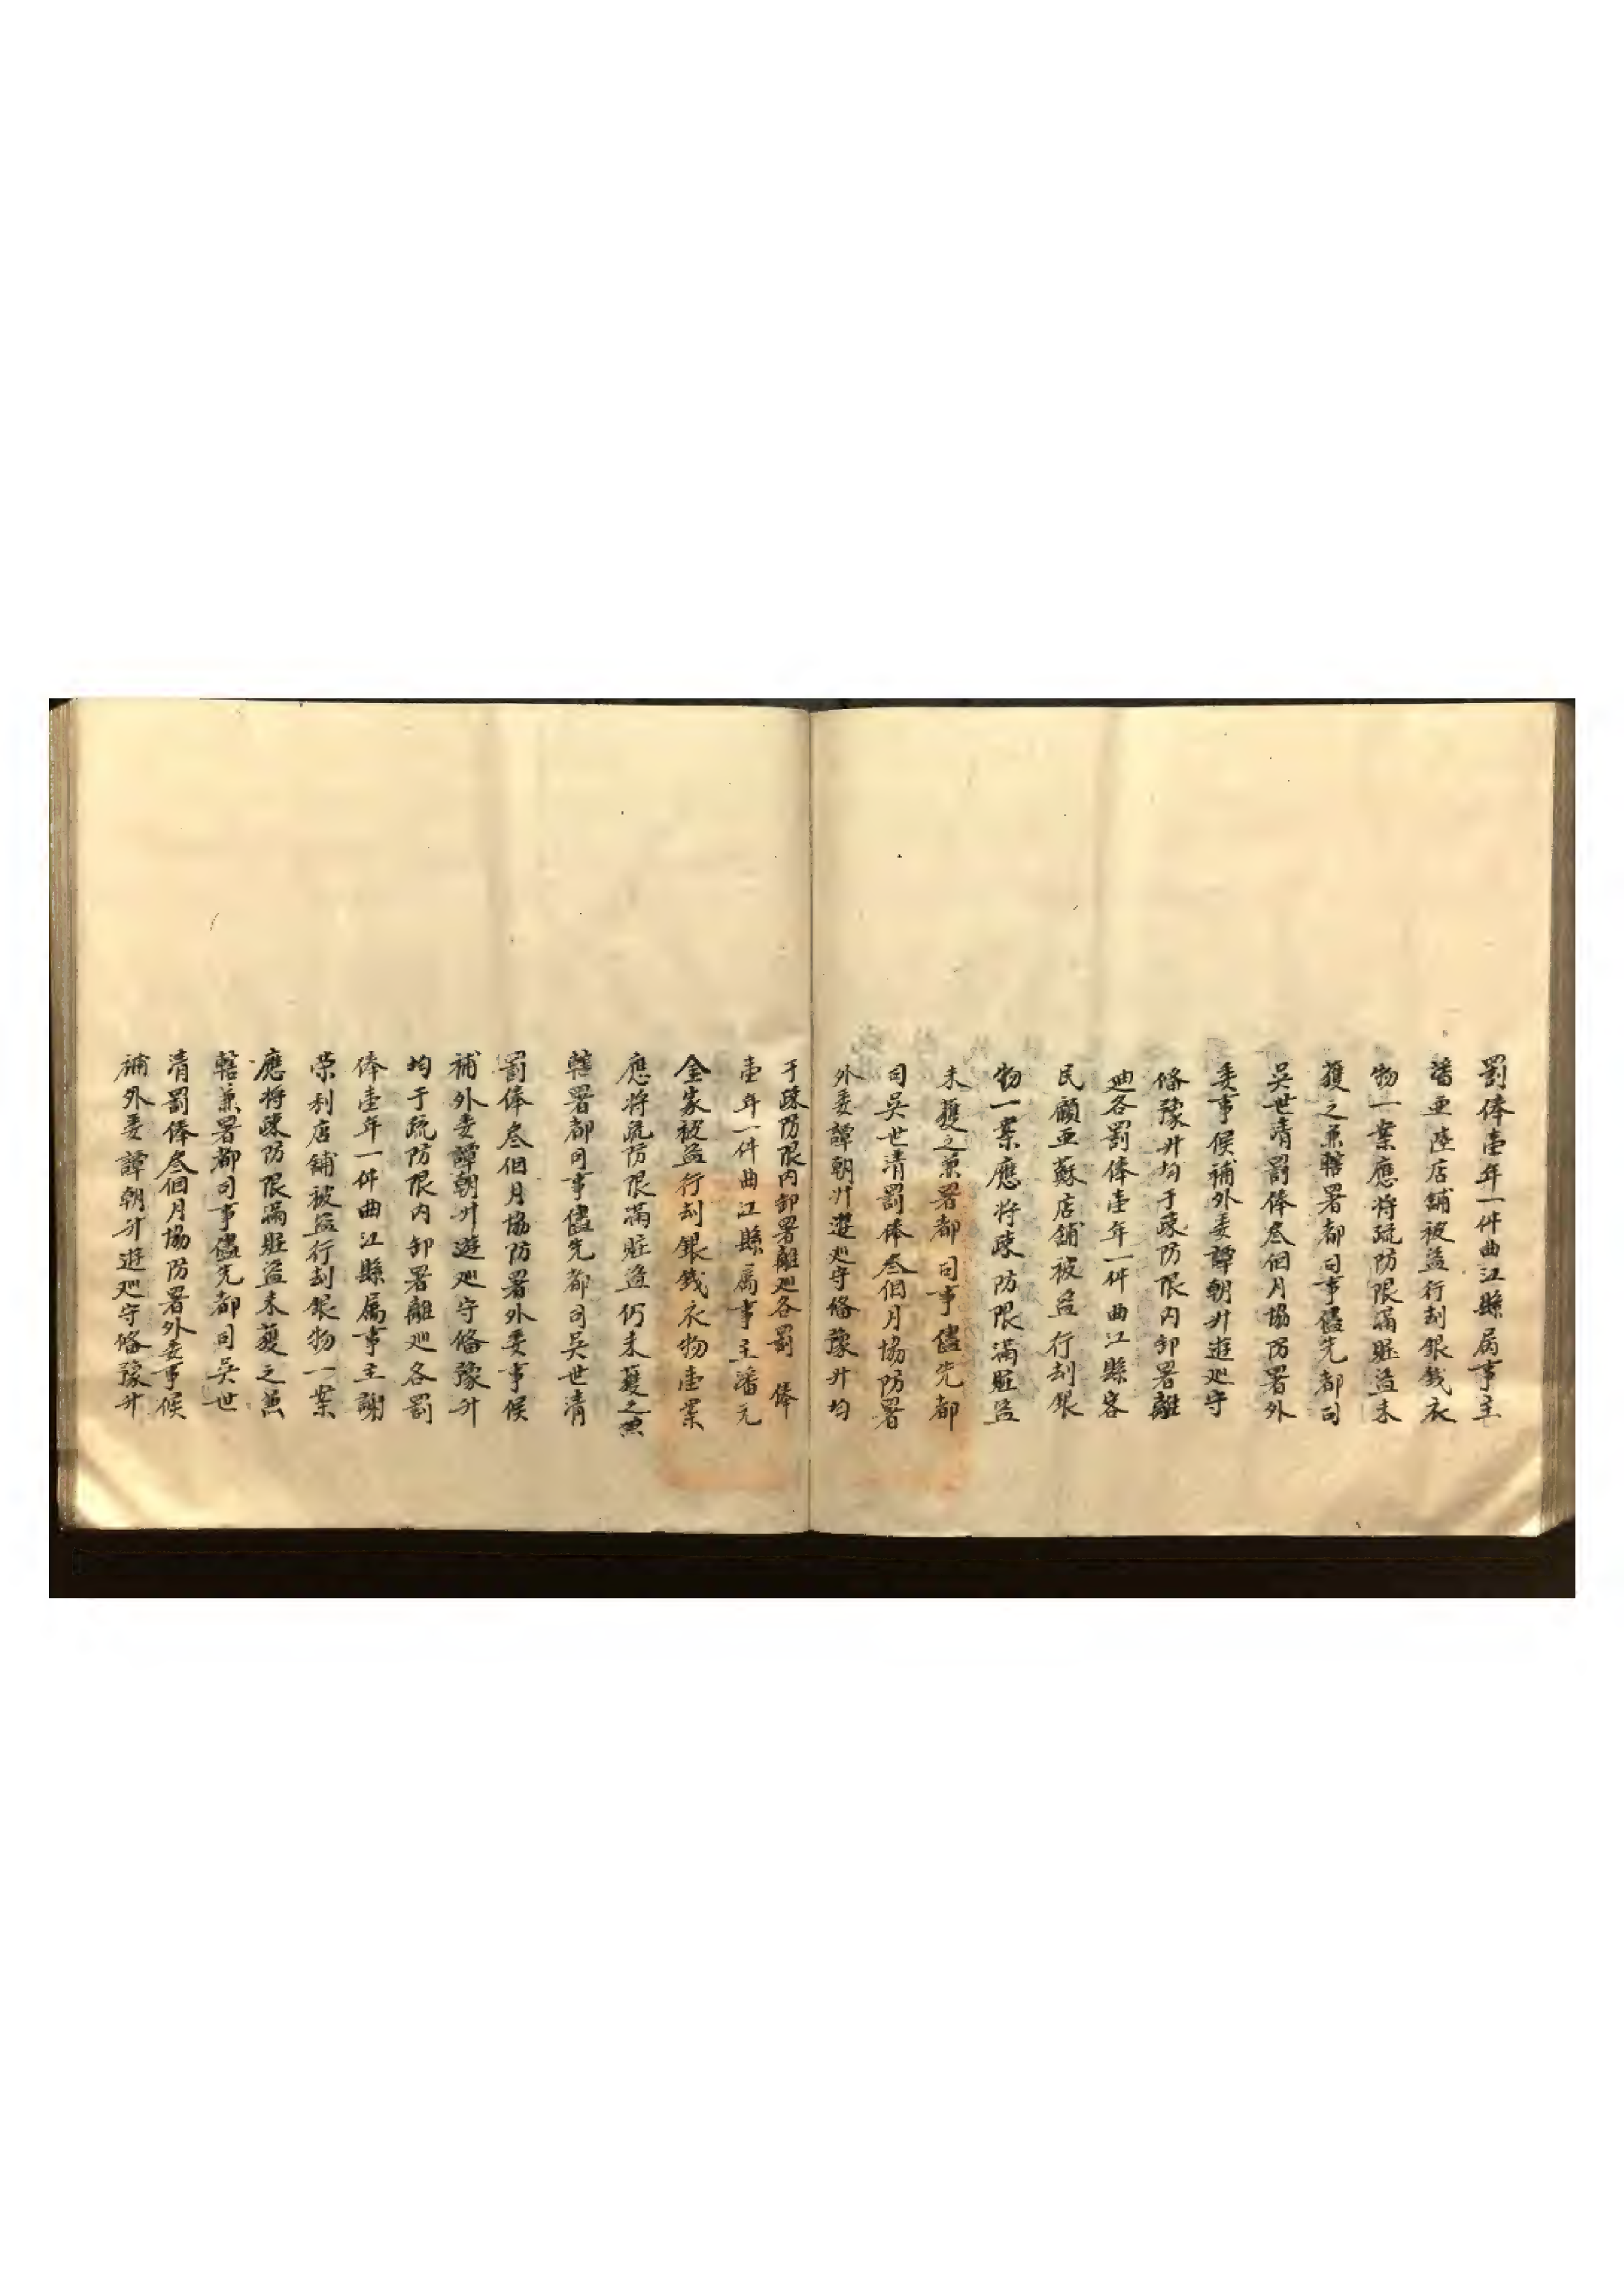 罰俸壹年一件曲江縣属事主
潘亜陸店鋪被盗行刦銀錢衣
物一案應将疏防限滿賍盗未
獲之兼轄署都司事儘先都司
吳世清罰俸叁個月協防署外
委事候補外委譚朝升廵守
俻豫升均于疎防限内卸署離
廵各罰俸壹年一件曲江縣客
民顧亜蘇店舖被盗行刦銀
物一案應将疎防限滿賍盗
未獲之兼署都司事儘先都
司吳世清罰俸叁個月協防署
外委譚朝升遊廵守俻豫升均
于疎防限内卸署離廵各罰俸
壹年一件曲江縣属事主潘元
金家被盗行刦銀錢衣物壹案
應将疏防限滿賍盗仍未獲之兼
轄署都司事儘先都司吳世清
罰俸叁個月協防署外委事候
補外委譚朝升遊廵守俻豫升
均于疏防限内卸署離廵各罰
俸壹年一件曲江縣属事主謝
荣利店舖被盗行刦銀物一案
應将疎防限滿賍盗未獲之兼
轄兼署都司事儘先都司吳世
清罰俸叁個月協防署外委事候
補外委譚朝升遊廵守俻豫升